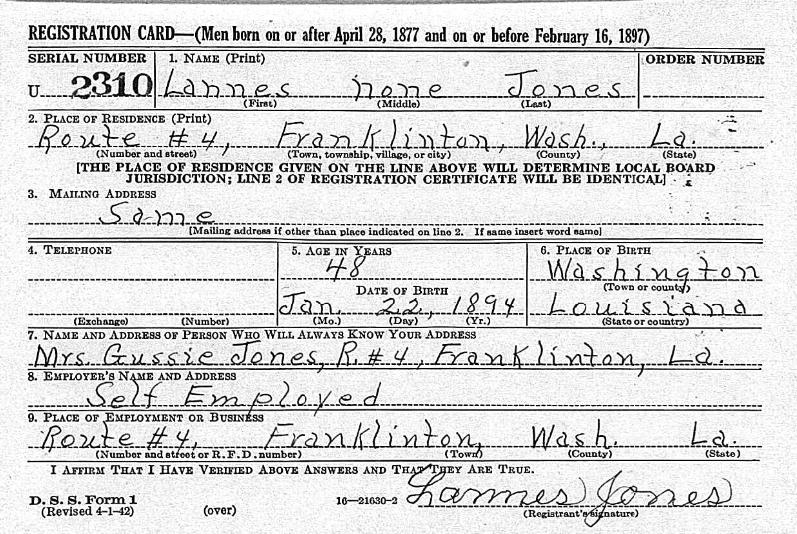 REGISTRATION CARD—(Men born on or after April 28, 1877 and on or before February 16, 1897)
SERIAL NUMBER 1. NAME (Print) ORDER NUMBER
U 2310 Lannes none Jones
(First) (Middle) (Last)
2. PLACE OF RESIDENCE (Print)
Route #4, Franklinton, Wash., La.
(Number and street) (Town, township, village, or city) (County) (State)
[THE PLACE OF RESIDENCE GIVEN ON THE LINE ABOVE WILL DETERMINE LOCAL BOARD
JURISDICTION; LINE 2 OF REGISTRATION CERTIFICATE WILL BE IDENTICAL]
3. MAILING ADDRESS
Same
[Mailing address if other than place indicated on line 2. If same insert word same]
4. TELEPHONE 5. AGE IN YEARS 6. PLACE OF BIRTH
48 Washington
DATE OF BIRTH (Town or county)
Jan. 22, 1894 Louisiana
(Exchange) (Number) (Mo.) (Day) (Yr.) (State or country)
7. NAME AND ADDRESS OF PERSON WHO WILL ALWAYS KNOW YOUR ADDRESS
Mrs. Gussie Jones, R. #4, Franklinton, La.
8. EMPLOYER'S NAME AND ADDRESS
Self Employed
9. PLACE OF EMPLOYMENT OR BUSINESS
Route #4, Franklinton, Wash. La.
(Number and street or R. F. D. number) (Town) (County) (State)
I AFFIRM THAT I HAVE VERIFIED ABOVE ANSWERS AND THAT THEY ARE TRUE.
D. S. S. Form 1
(Revised 4-1-42) (over) 16—21630-2 Lannes Jones
(Registrant's signature)